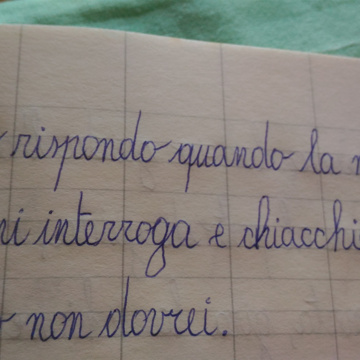 rispondo quando la
interroga e chiacchi
non dovrei.